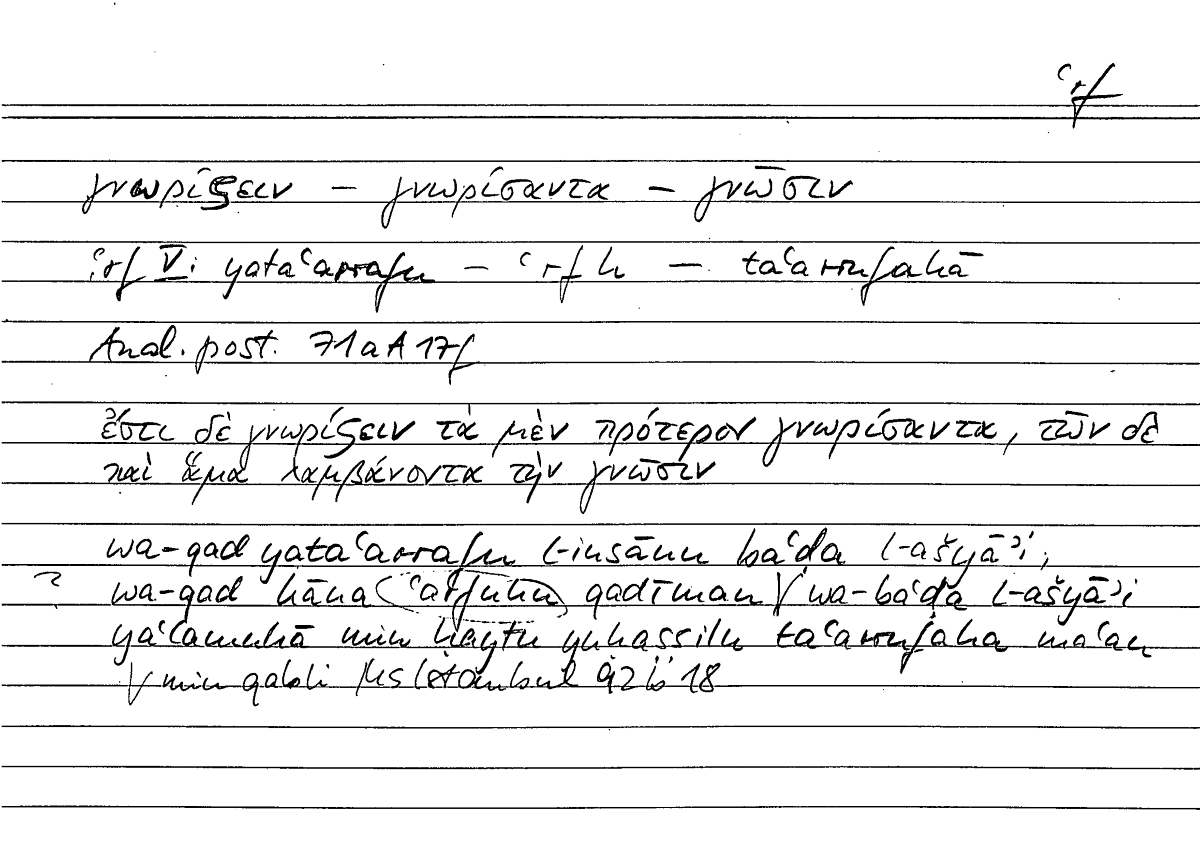 ʿrf
γνωρίζειν – γνωρίσαντα – γνῶσιν
ʿrf V: yataʿarrafu – ʿrfh – taʿarrufahā
Anal. post. 71aA17f
ἔστι δὲ γνωρίζειν τὰ μὲν πρότερον γνωρίσαντα, τῶν δὲ
καὶ ἅμα λαμβάνοντα τὴν γνῶσιν
wa-qad yataʿarrafu l-insānu baʿḍa l-ašyāʾi,
? wa-qad kāna (ʿarfuhu) qadīman √ wa-baʿḍa l-ašyāʾi
yaʿlamuhā min ḥayṯu yuḥaṣṣilu taʿarrufaha maʿan
√ min qabli Ms Istanbul 92 b 18